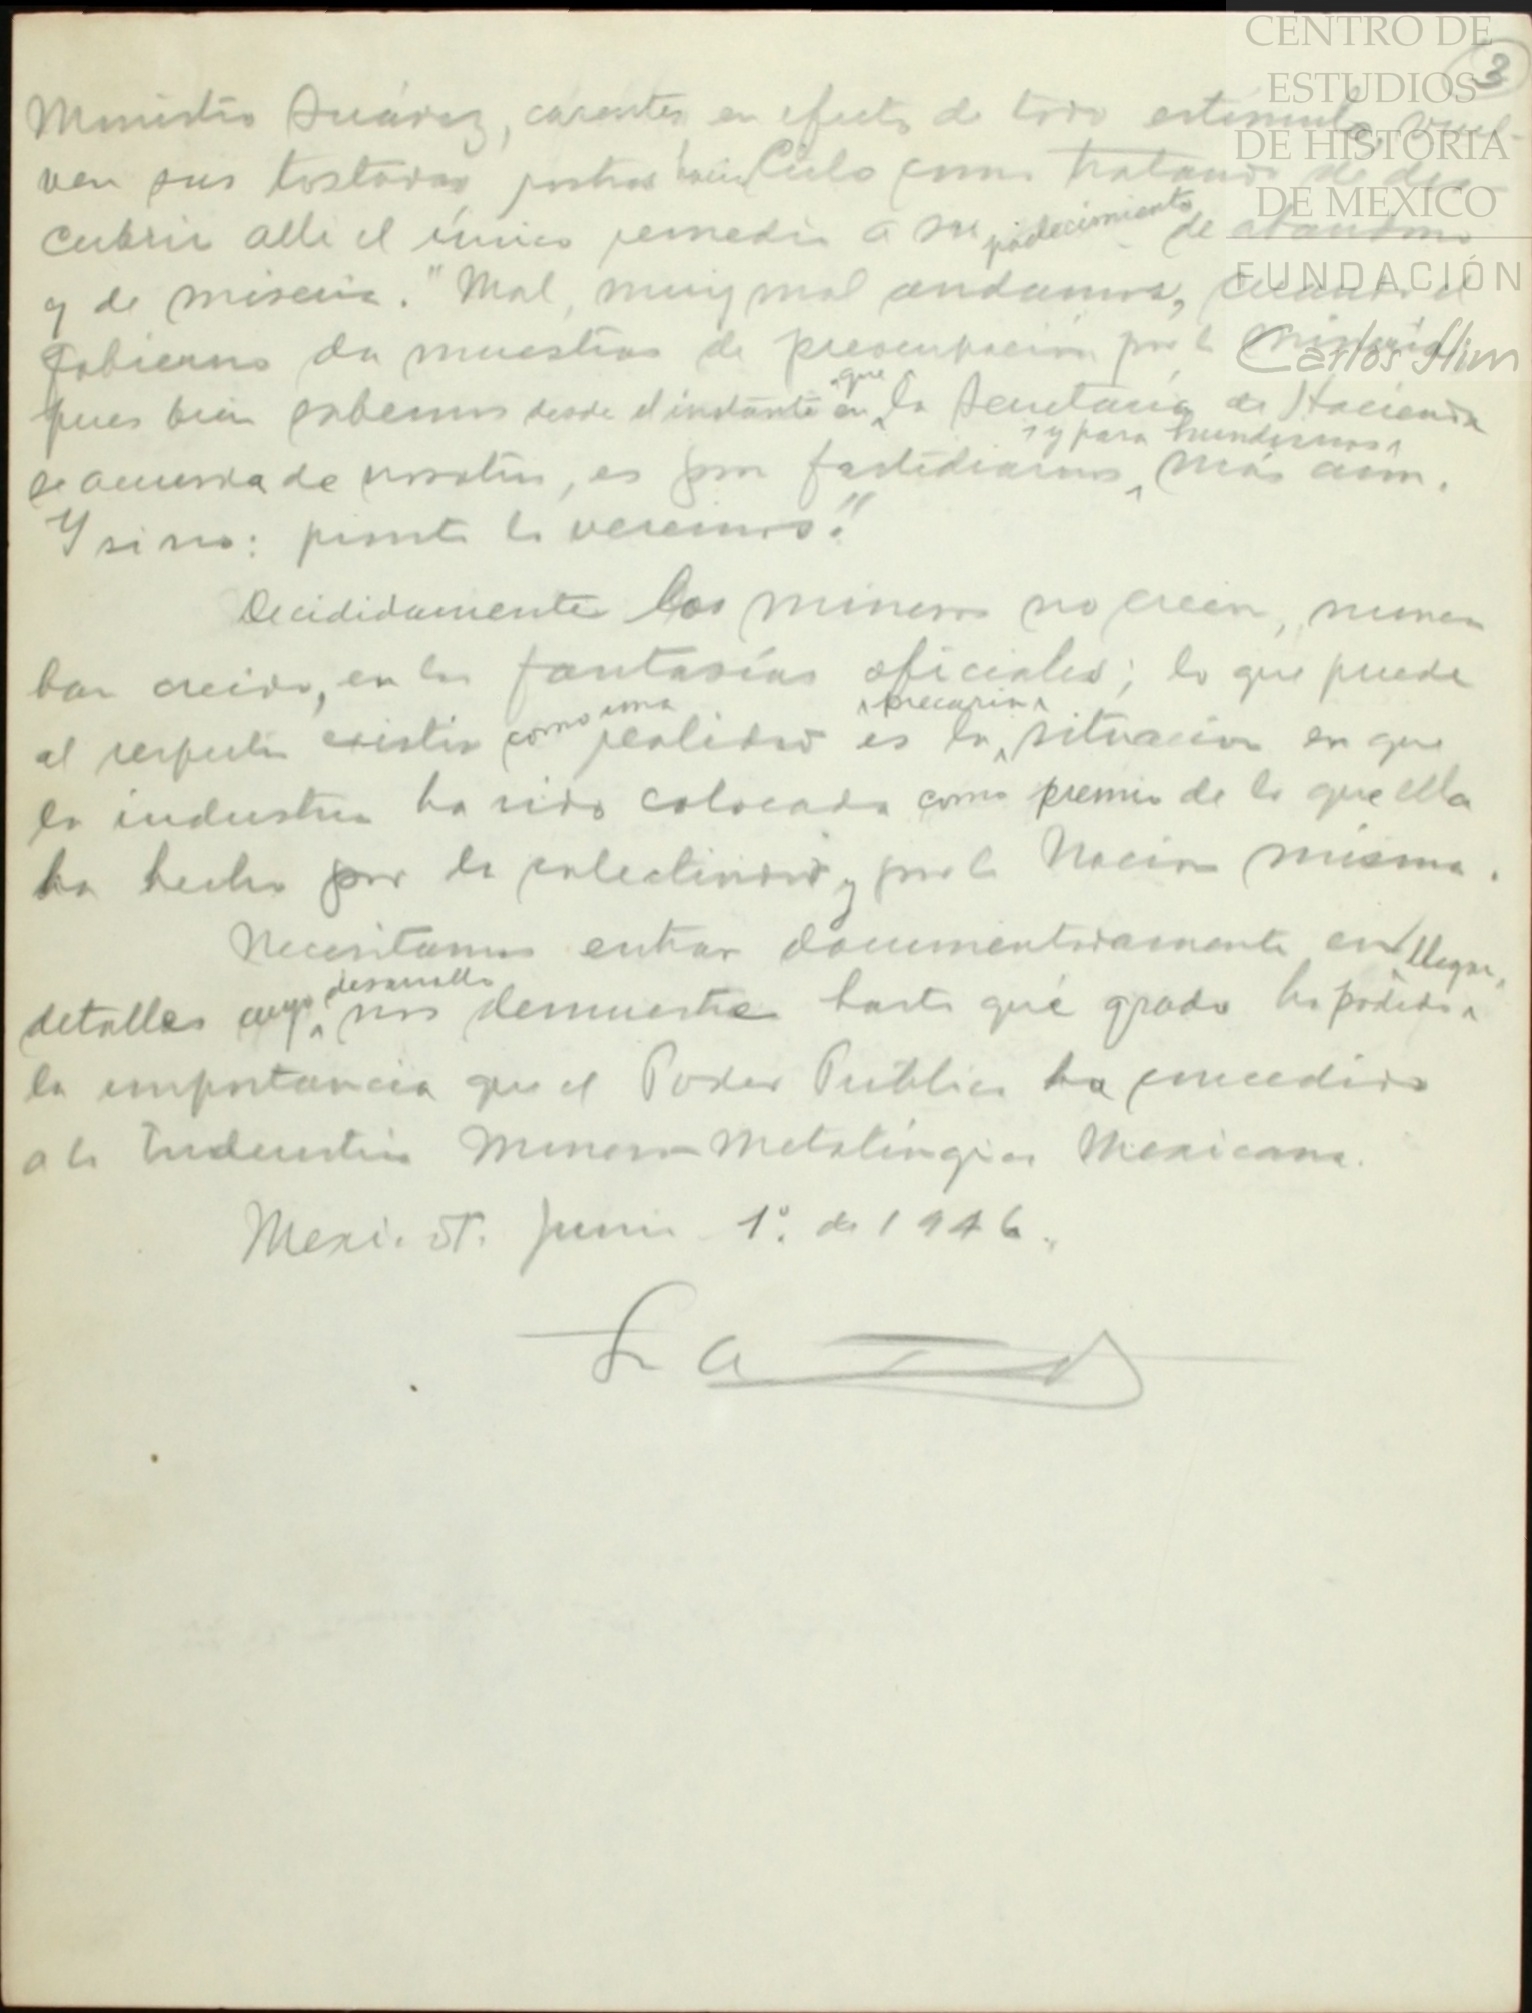 CENTRO DE
ESTUDIOS
DE HISTORIA
DE MEXICO
FUNDACIÓN
Carlos Slim
3
Ministro Suárez, carentes en efecto de todo estímulo, vuel-
ven sus tostados rostros hacia Cielo como tratando de des-
cubrir alli el único remedio a su padecimiento de abandono
y de miseria. "Mal, muy mal andamos, cuando el
Gobierno da muestras de preocupación por la minería
pues bien sabemos desde el instante en que la Secretaría de Hacienda
se acuerda de nosotros, es por fastidiarnos y para hundirnos más aun.
Y si no: pronto lo veremos."
Decididamente los mineros no creen, nunca
han creido, en las fantasías oficiales; lo que puede
al respecto existir como una realidad es la precaria situación en que
la industria ha sido colocada como premio de lo que ella
ha hecho por la colectividad y por la Nación misma.
Necesitamos entrar documentadamente en
detalles cuyo desarrollo nos demuestre hasta qué grado ha podido llegar
la importancia que el Poder Público ha concedido
a la Industria Minero-Metalúrgica Mexicana.
Junio 1º. de 1946.